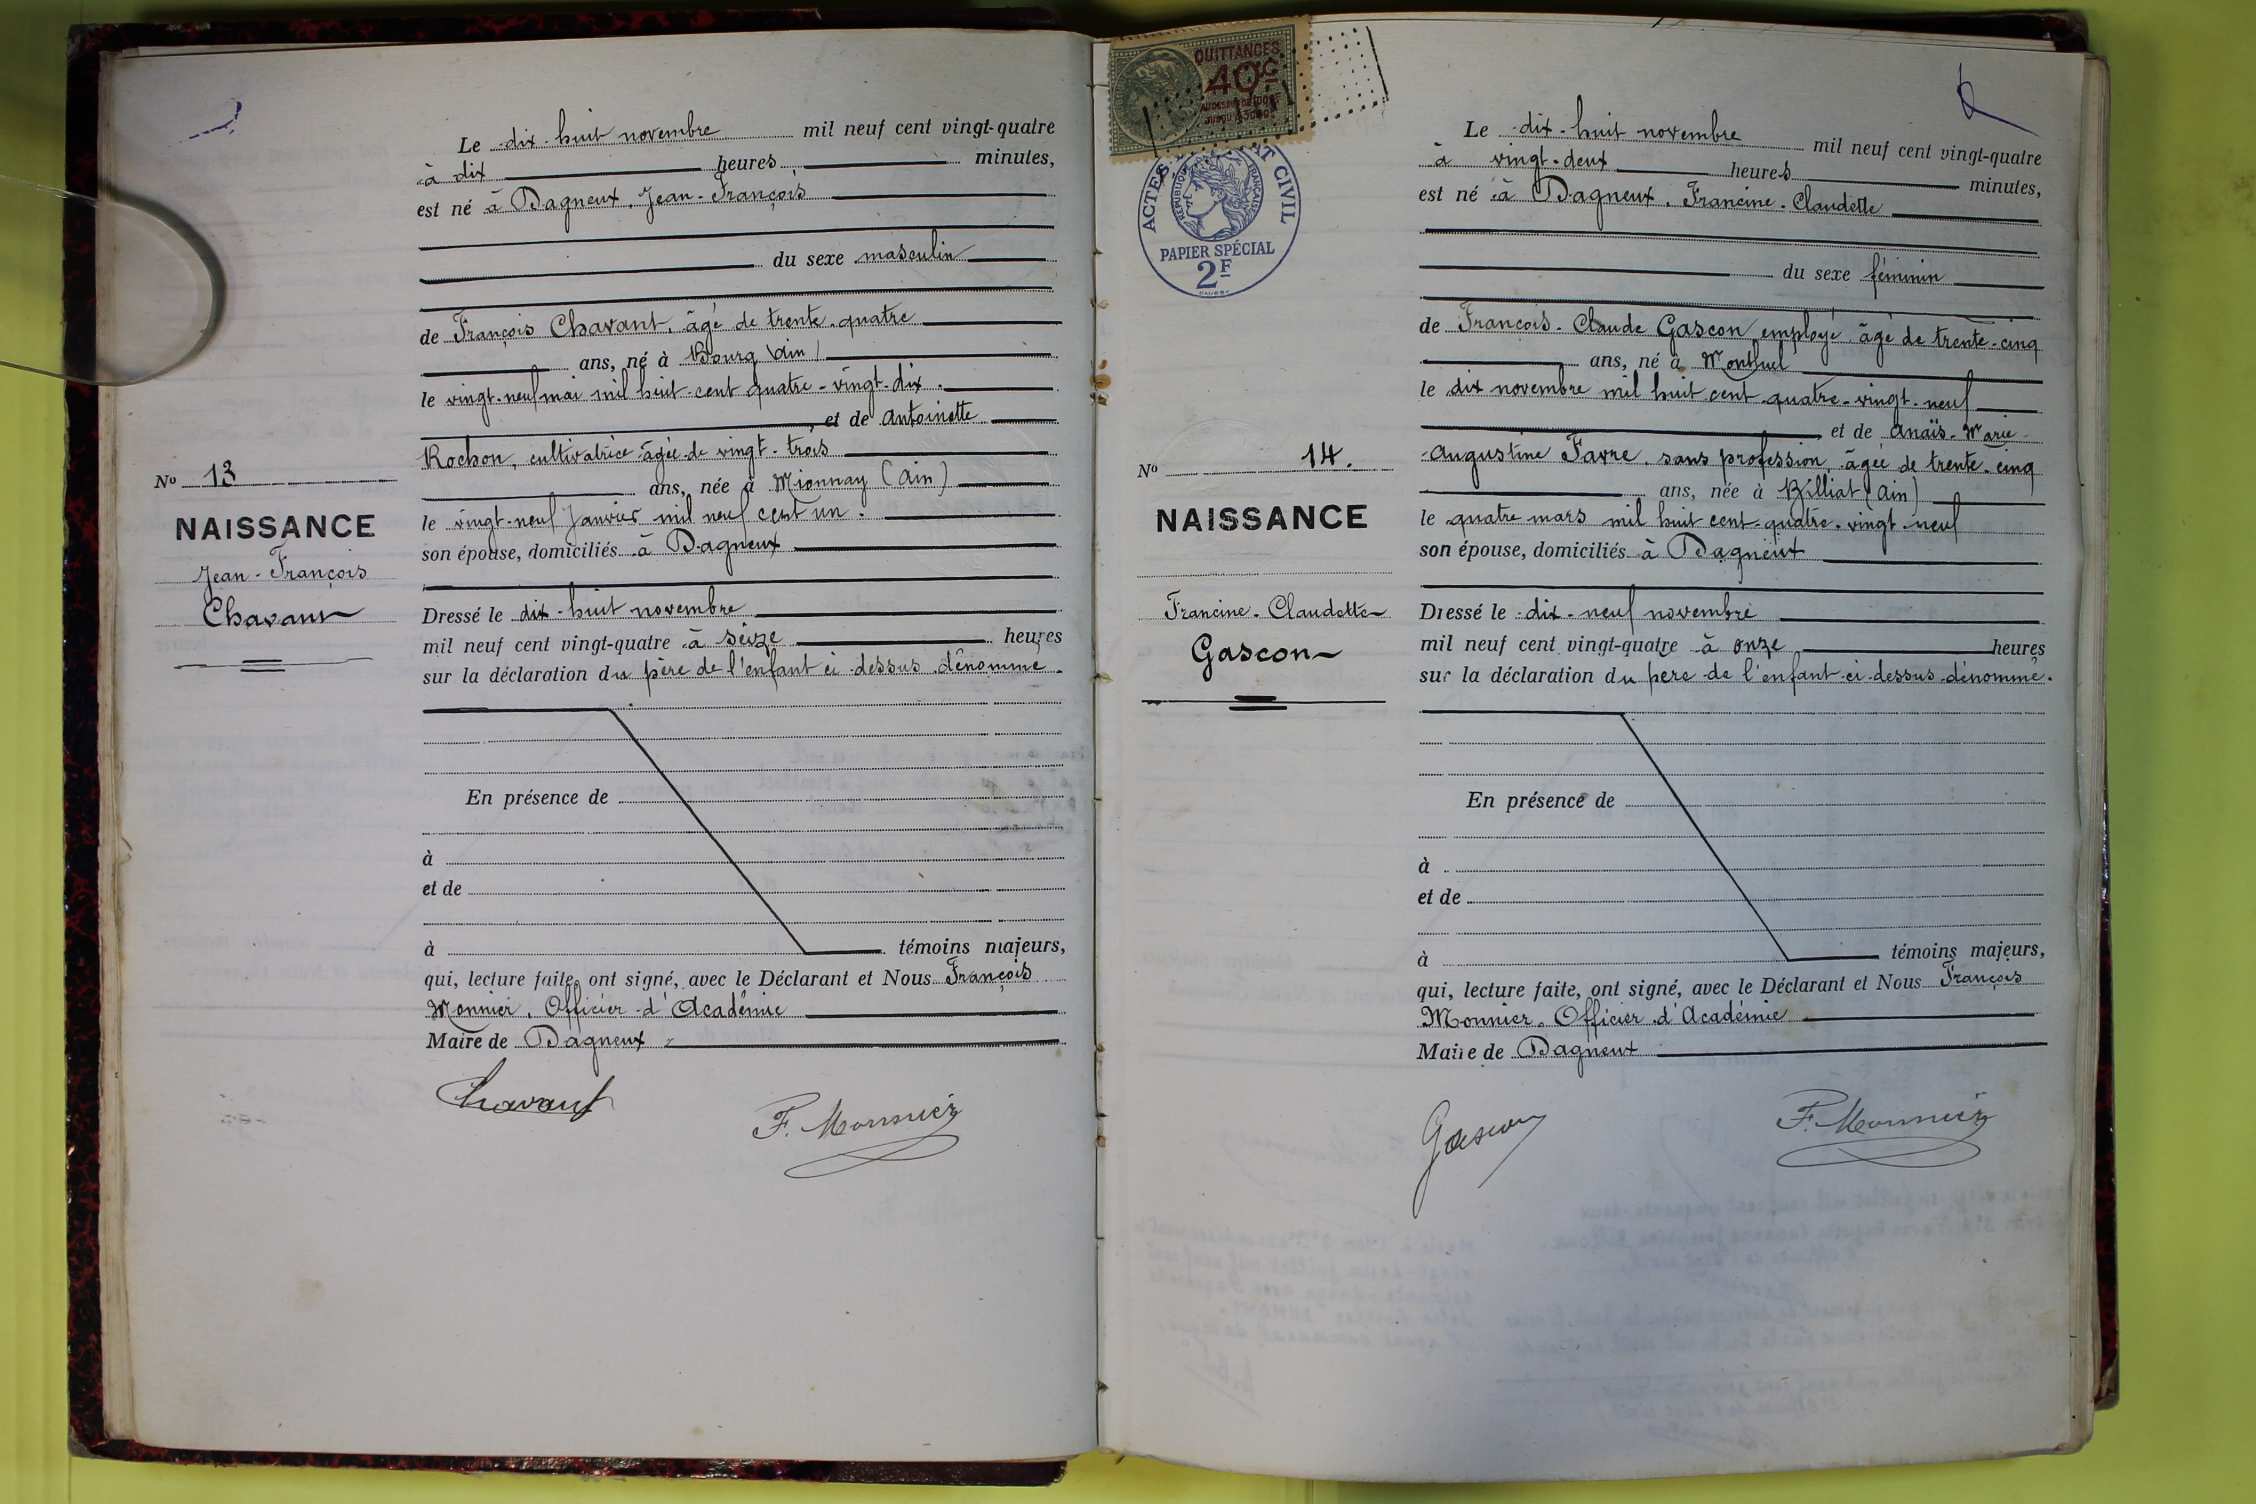 Le dix-huit novembre mil neuf cent vingt-quatre
à dix heures minutes,
est né à Dagneux, Jean-François
du sexe masculin
de François Chavant, âgé de trente-quatre
ans, né à Bourg (Ain)
le vingt-neuf mai mil huit-cent quatre-vingt-dix.
, et de Antoinette
Rochon, cultivatrice âgée de vingt-trois
ans, née à Mionnay (Ain)
le vingt-neuf Janvier mil neuf cent un.
son épouse, domiciliés à Dagneux
No 13
NAISSANCE
Jean-François
Chavant
Dressé le dix-huit novembre
mil neuf cent vingt-quatre à seize heures
sur la déclaration du père de l'enfant ci-dessus dénommé.
En présence de
à
et de
à témoins majeurs,
qui, lecture faite, ont signé, avec le Déclarant et Nous François
Monnier, Officier d'Académie
Maire de Dagneux
Chavant
F. Monnier
QUITTANCES
40c
ACTES ETAT CIVIL
REPUBLIQUE FRANÇAISE
PAPIER SPÉCIAL
2F
Le dix-huit novembre mil neuf cent vingt-quatre
à vingt-deux heures minutes,
est né à Dagneux, Francine-Claudette
du sexe féminin
de François-Claude Gascon employé âgé de trente-cinq
ans, né à Montluel
le dix novembre mil huit cent quatre-vingt-neuf
et de Anaïs-Marie-
Augustine Favre, sans profession, âgée de trente-cinq
ans, née à Billiat (Ain)
le quatre mars mil huit cent-quatre-vingt-neuf
son épouse, domiciliés à Dagneux
No 14.
NAISSANCE
Francine-Claudette
Gascon
Dressé le dix-neuf novembre
mil neuf cent vingt-quatre à onze heures
sur la déclaration du père de l'enfant ci-dessus dénommé.
En présence de
à
et de
à témoins majeurs,
qui, lecture faite, ont signé, avec le Déclarant et Nous François
Monnier, Officier d'Académie
Maire de Dagneux
Gascon
F. Monnier